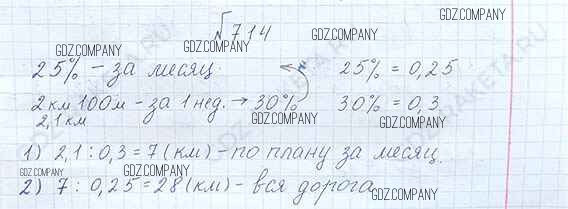 √714
GDZ.COMPANY GDZ.COMPANY GDZ.COMPANY
25% – за месяц. 25% = 0,25
GDZ.COMPANY
2 км 100 м – за 1 нед. → 30% 30% = 0,3
2,1 км GDZ.COMPANY GDZ.COMPANY
1) 2,1 : 0,3 = 7 (км) – по плану за месяц.
GDZ.COMPANY GDZ.COMPANY
2) 7 : 0,25 = 28 (км) – вся дорога
GDZ.COMPANY